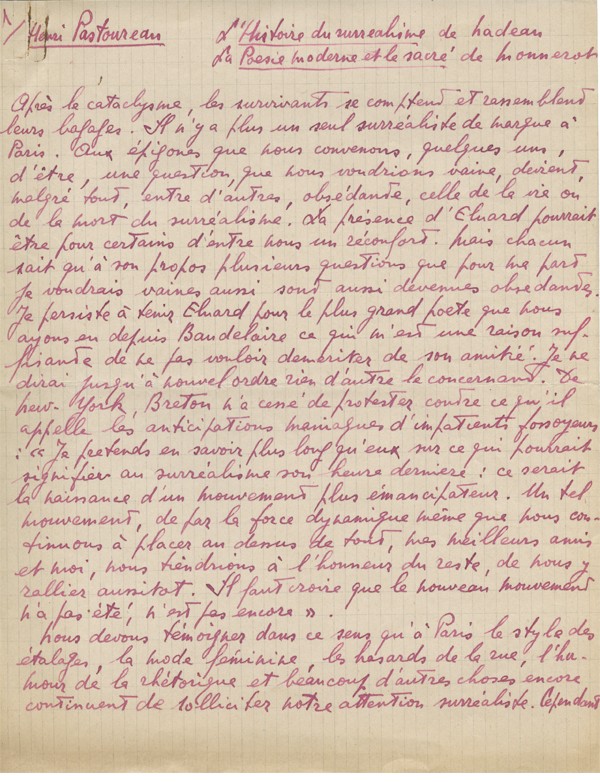 1/ Henri Pastoureau L'Histoire du surréalisme de nadeau
La Poesie moderne et le sacré de monnerot
Après le cataclysme, les survivants se comptend et rassemblend
leurs bagages. Il n'y a plus un seul surréaliste de marque à
Paris. Aux épigones que nous convenons, quelques uns,
d'être, une question, que nous voudrions vaine, devient,
malgré tout, entre d'autres, obsédande, celle de la vie ou
de la mort du surréalisme. La présence d'Eluard pourrait
être pour certains d'entre nous un réconfort. Mais chacun
sait qu'à son propos plusieurs questions que pour ma part
je voudrais vaines aussi sont aussi devennes obsédandes.
Je persiste à tenir Eluard pour le plus grand poete que nous
ayons en depuis Baudelaire ce qui m'est une raison suf-
fisande de ne pas vouloir demeriter de son amitié. Je ne
dirai jusqu'à nouvel ordre rien d'autre le concernand. De
new-York, Breton n'a cessé de protester contre ce qu'il
appelle les anticipations maniaques d'impatients fossoyeurs
: « Je pretends en savoir plus long qu'eux sur ce qui pourrait
signifier au surréalisme son heure derniere : ce serait
la naissance d'un mouvement plus émancipateur. Un tel
mouvement, de par la force dynamique même que nous con-
tinuons à placer au dessus de tout, mes meilleurs amis
et moi, nous tiendrions à l'honneur du reste, de nous y
rallier aussitot. Il faut croire que le nouveau mouvement
n'a pas été, n'est pas encore ».
nous devons témoigner dans ce sens qu'à Paris le style des
étalages, la mode féminine, les hasards de la rue, l'hu-
mour de la rhétorique et beaucoup d'autres choses encore
continuent de solliciter notre attention surréaliste. Cependant